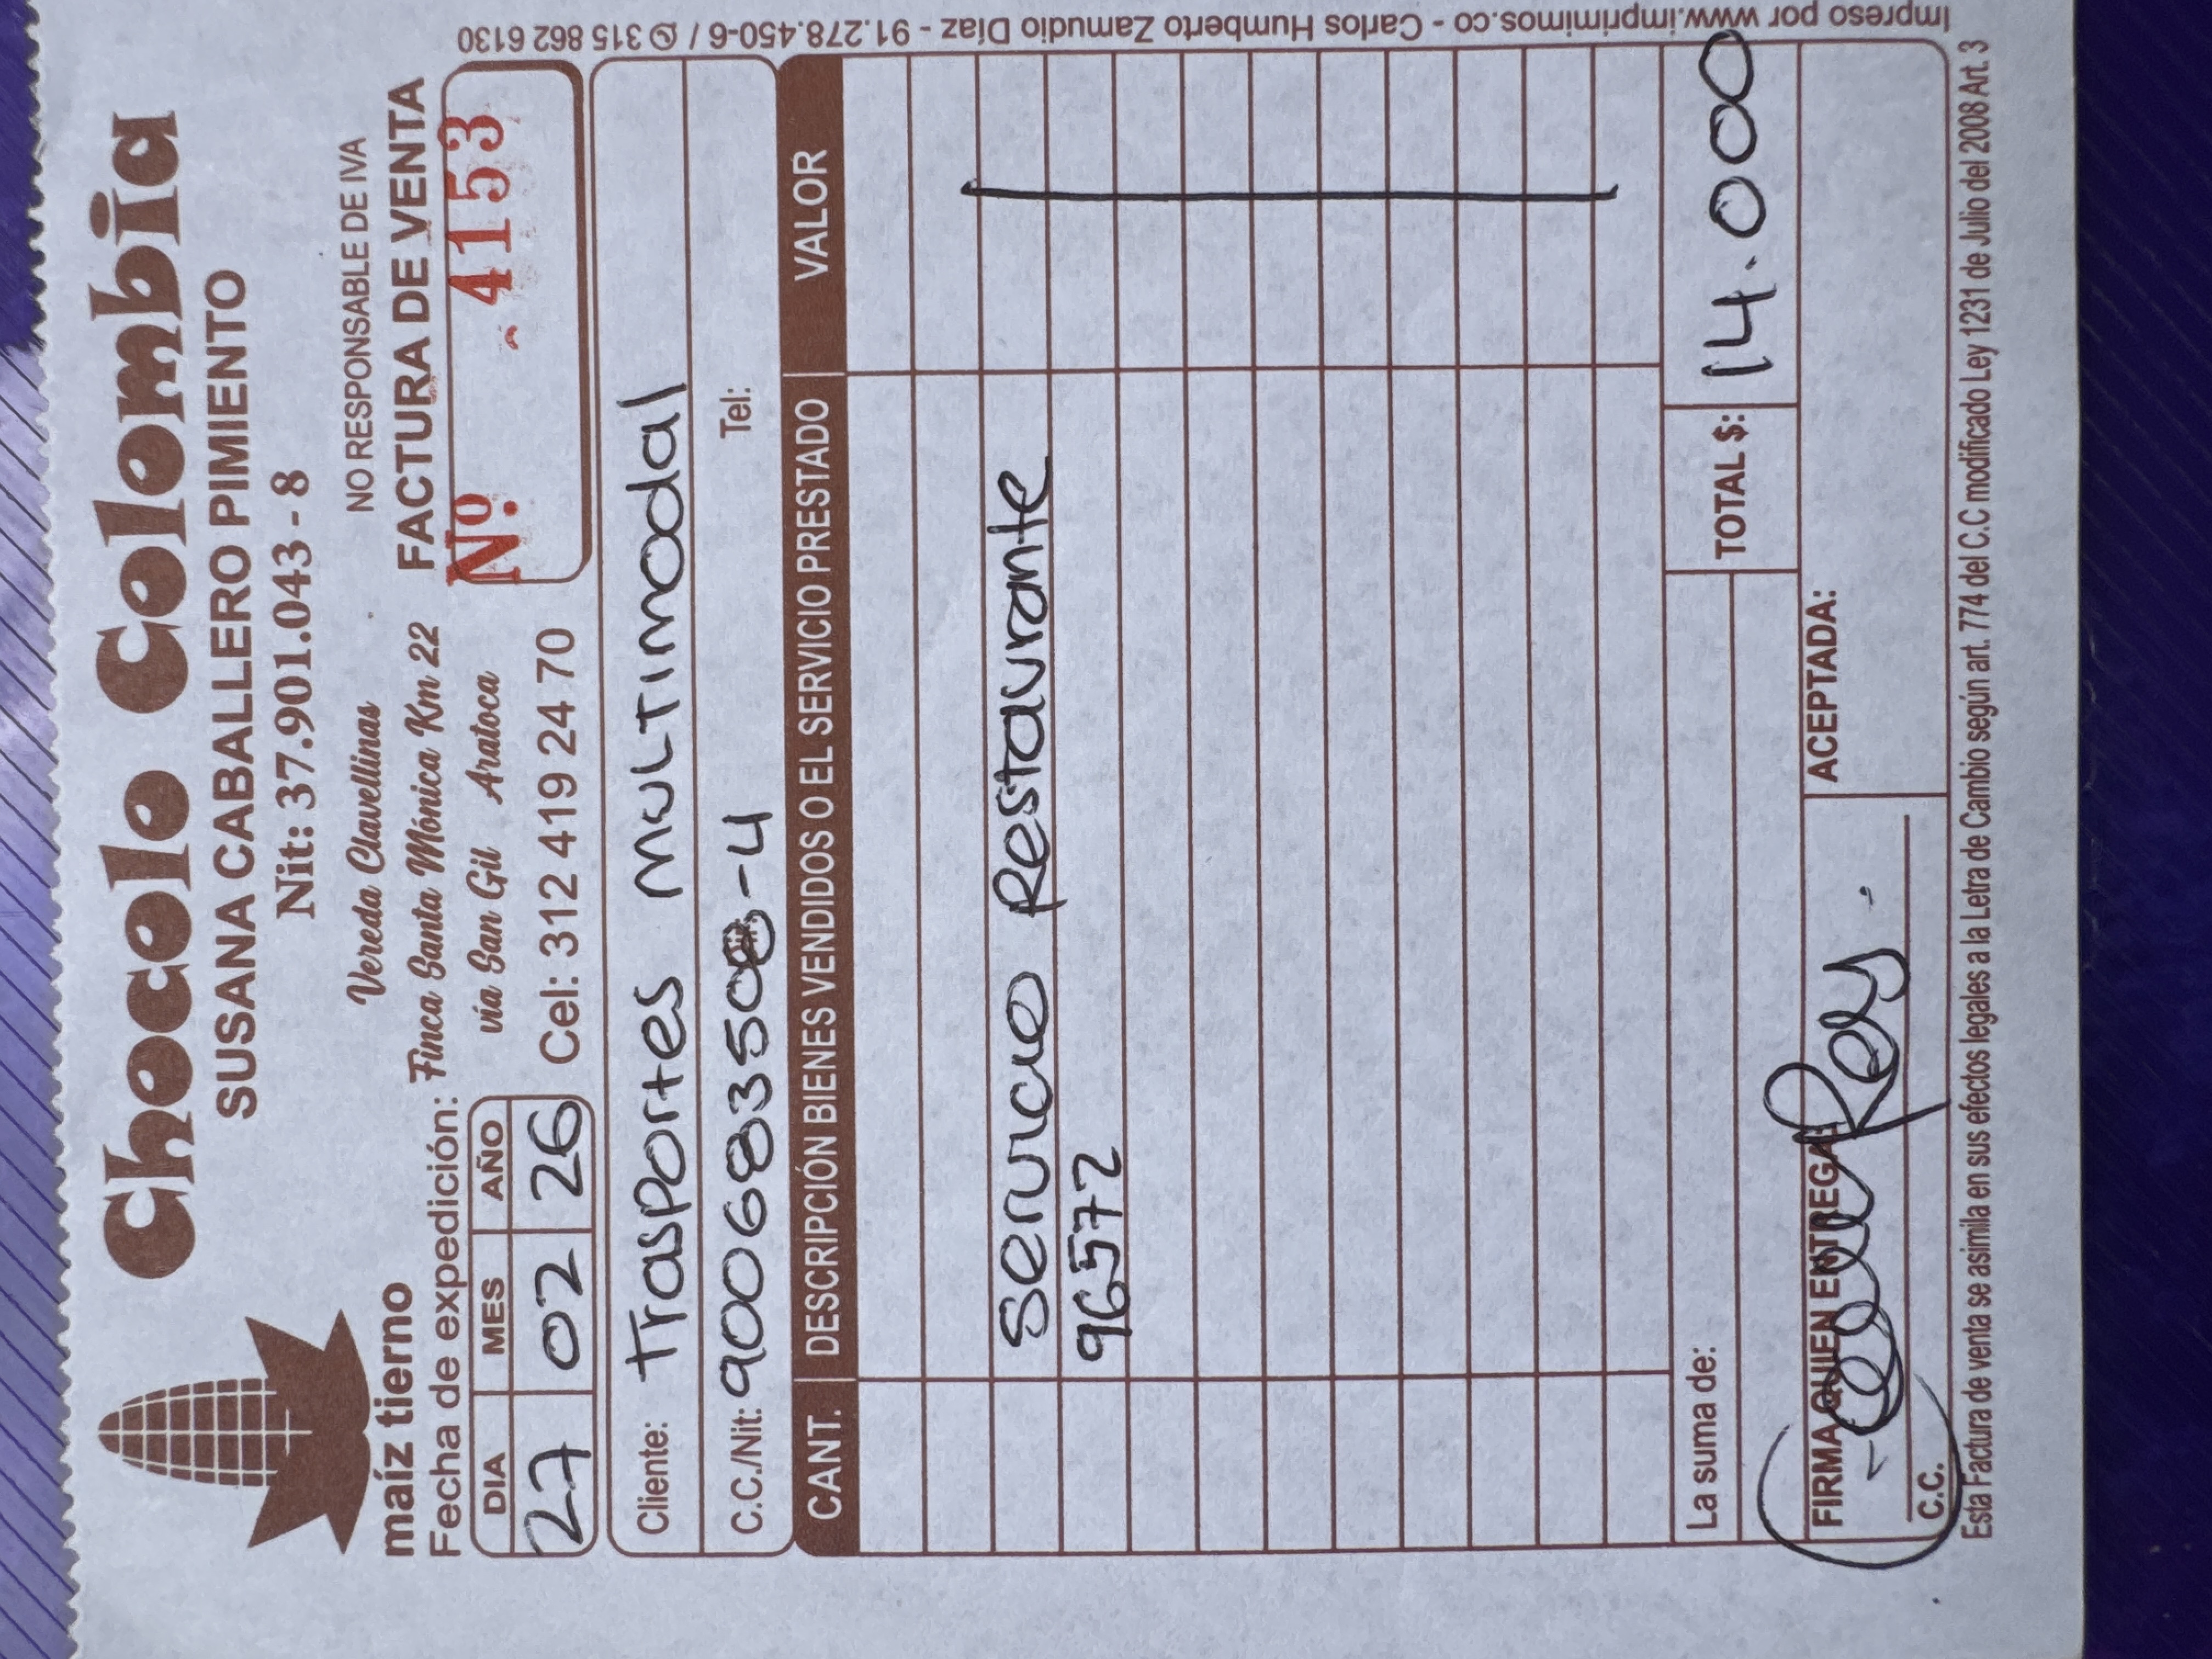 Chocolo Colombia
SUSANA CABALLERO PIMIENTO
Nit: 37.901.043 - 8
maíz tierno
Vereda Clavellinas
Finca Santa Mónica Km 22
vía San Gil Aratoca
Cel: 312 419 24 70
NO RESPONSABLE DE IVA
FACTURA DE VENTA
Nº 4153
Fecha de expedición:
DIA MES AÑO
27 02 26
Cliente: Trasportes MULTimodal
C.C./Nit: 900683508-4 Tel:
CANT. DESCRIPCIÓN BIENES VENDIDOS O EL SERVICIO PRESTADO VALOR
Servicio Restaurante
96572
La suma de:
TOTAL $: 14.000
FIRMA QUIEN ENTREGA:
ACEPTADA:
C.C.
Esta Factura de venta se asimila en sus efectos legales a la Letra de Cambio según art. 774 del C.C modificado Ley 1231 de Julio del 2008 Art. 3
Impreso por www.imprimimos.co - Carlos Humberto Zamudio Díaz - 91.278.450-6 / 315 862 6130